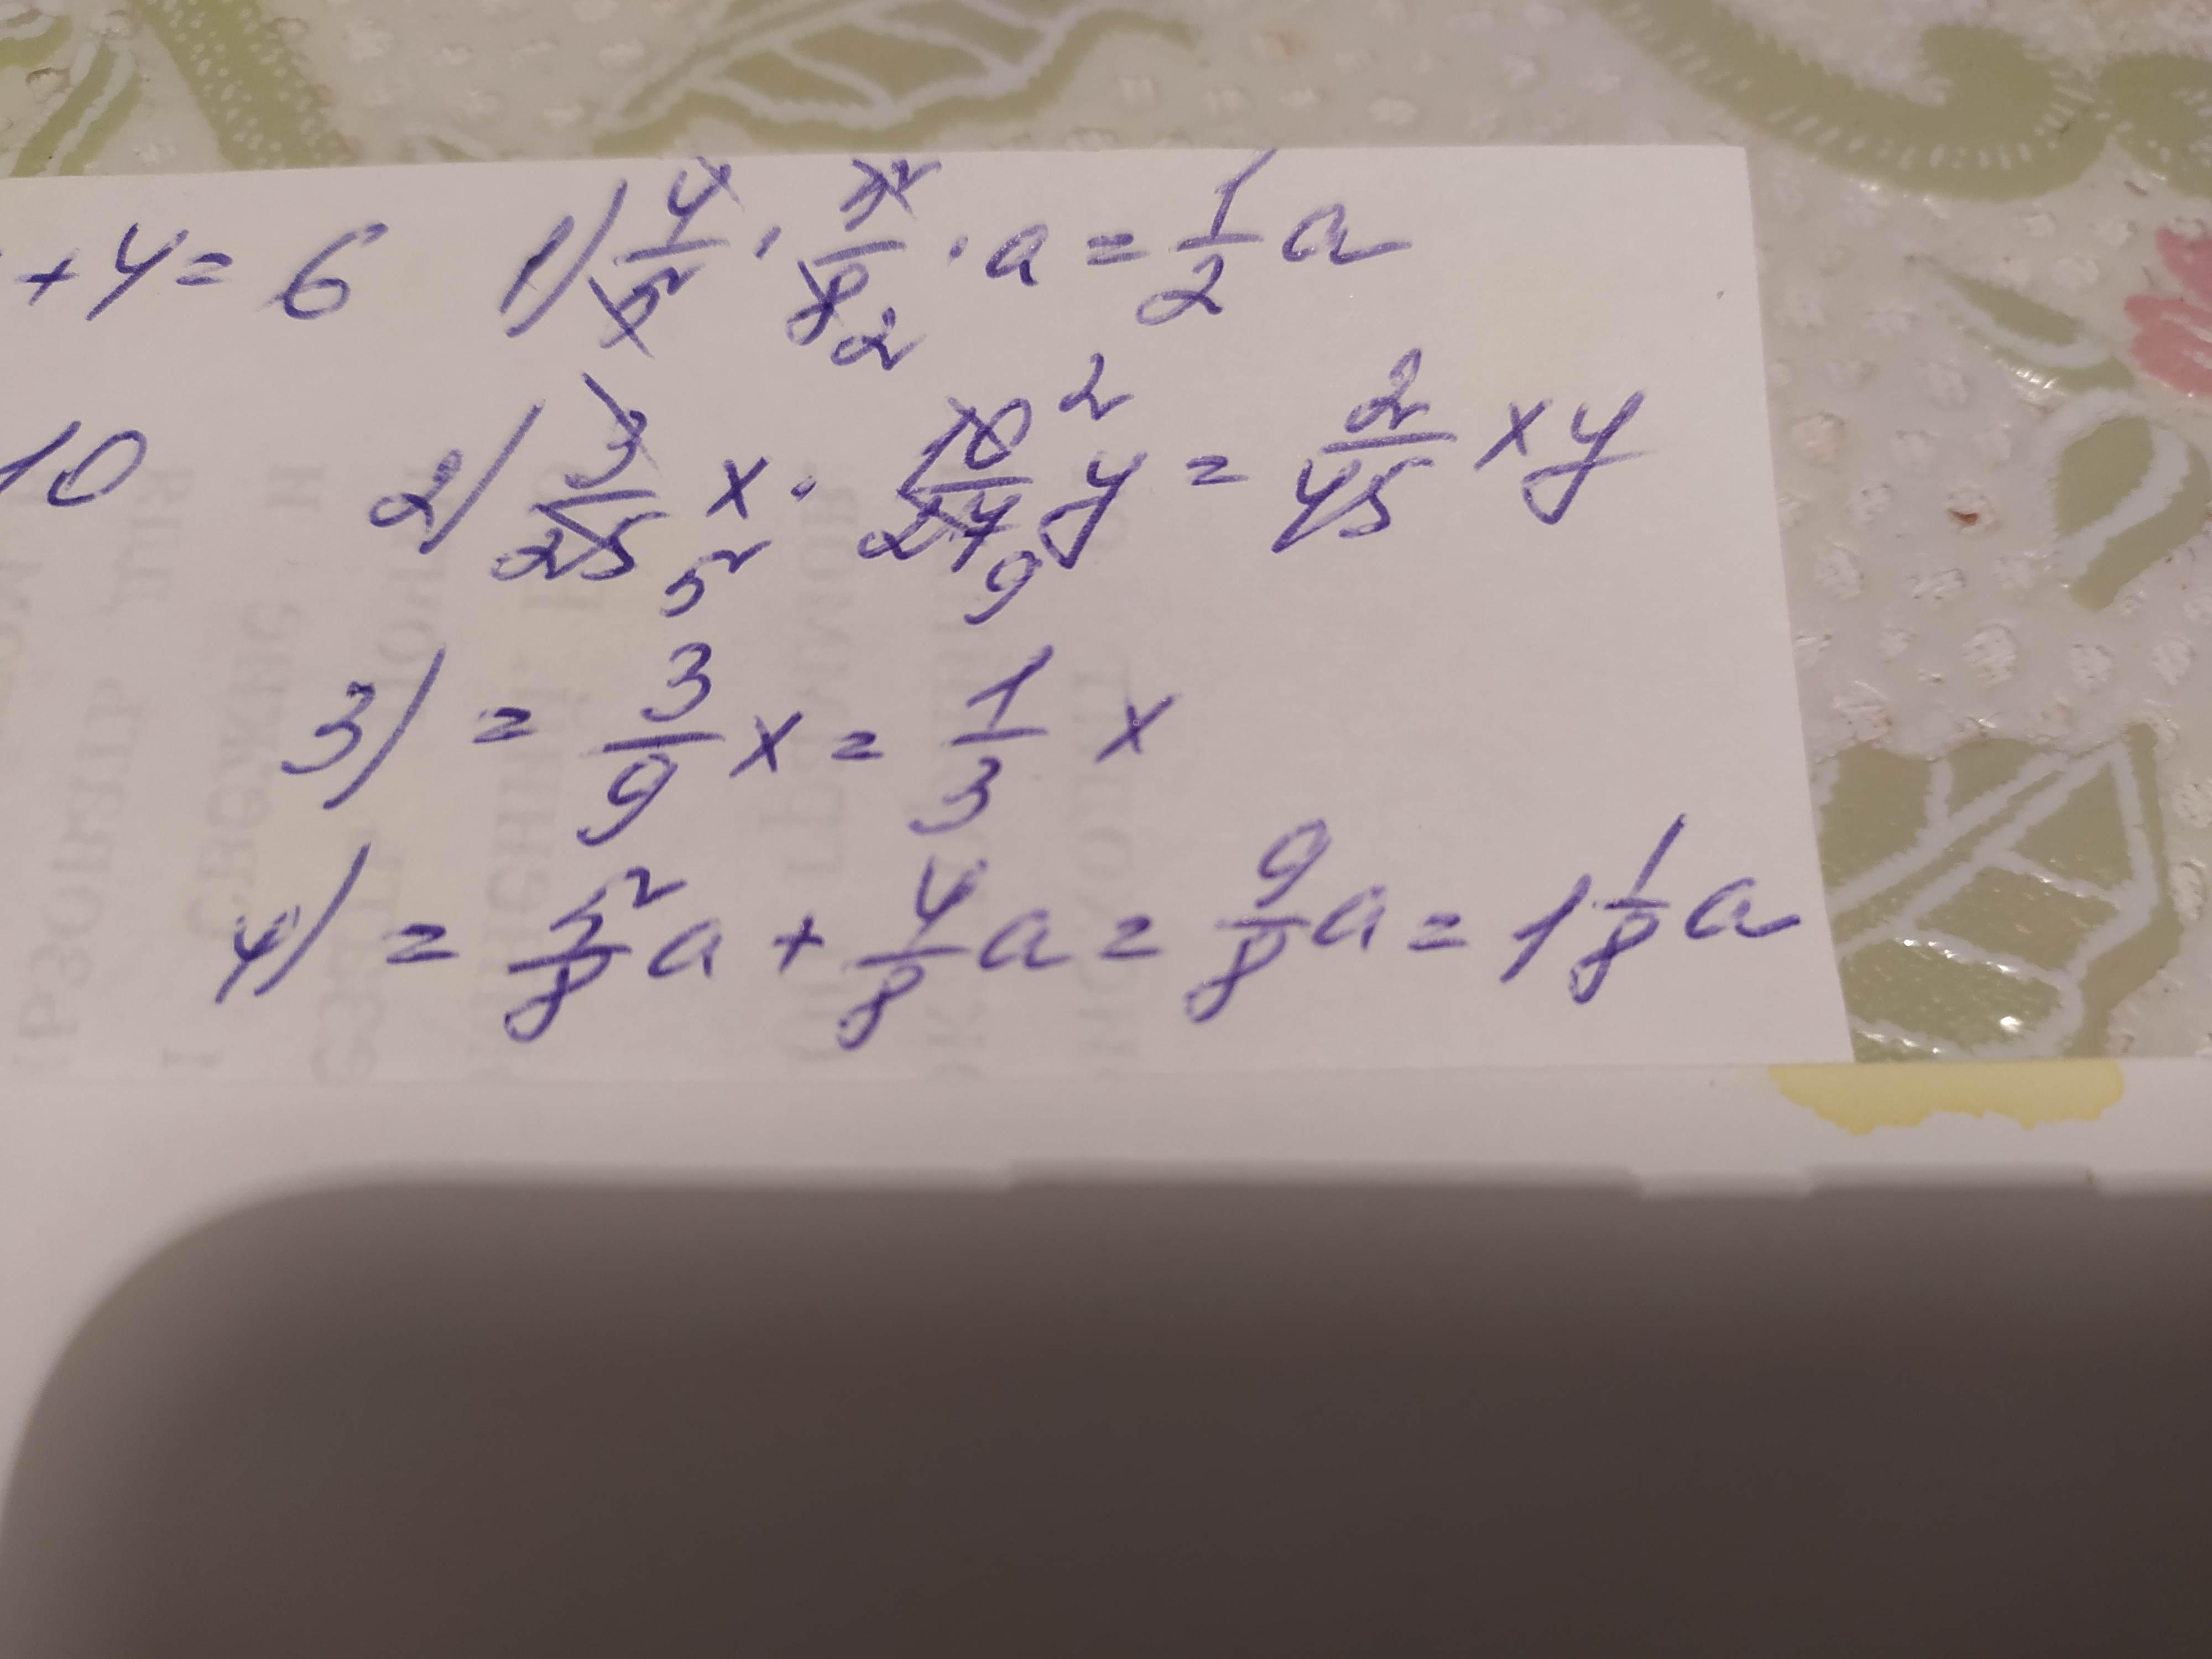 + 4 = 6 1) 4/5 · 5/8 2 · a = 1/2 a
10 2) 3/25 5 x · 10 2/27 9 y = 2/45 xy
3) = 3/9 x = 1/3 x
4) = 5/8 a + 4/8 a = 9/8 a = 1 1/8 a